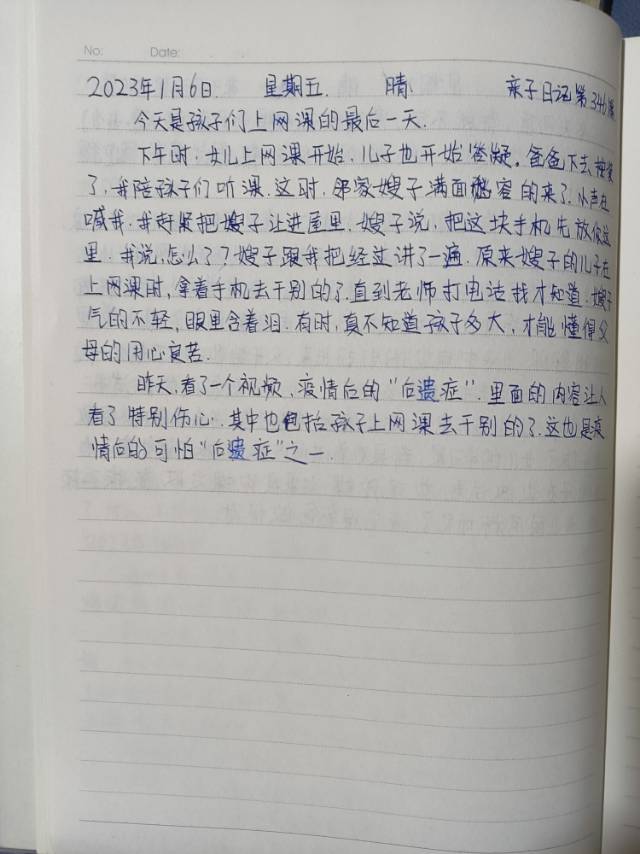 No: Date:
2023年1月6日. 星期五. 晴 亲子日记第346篇
今天是孩子们上网课的最后一天.
下午时,女儿上网课开始,儿子也开始答疑。爸爸下去
了,我陪孩子们听课.这时.邻家嫂子满面愁容的来了.小声在
喊我.我赶紧把嫂子让进屋里.嫂子说,把这块手机先放你这
里.我说,怎么了?嫂子跟我把经过讲了一遍.原来嫂子的儿子在
上网课时,拿着手机去干别的了.直到老师打电话找才知道.嫂子
气的不轻,眼里含着泪.有时,真不知道孩子多大,才能懂得父
母的用心良苦.
昨天,看了一个视频,疫情后的“后遗症”.里面的内容让人
看了特别伤心.其中也包括孩子上网课去干别的了.这也是疫
情后的可怕“后遗症”之一.